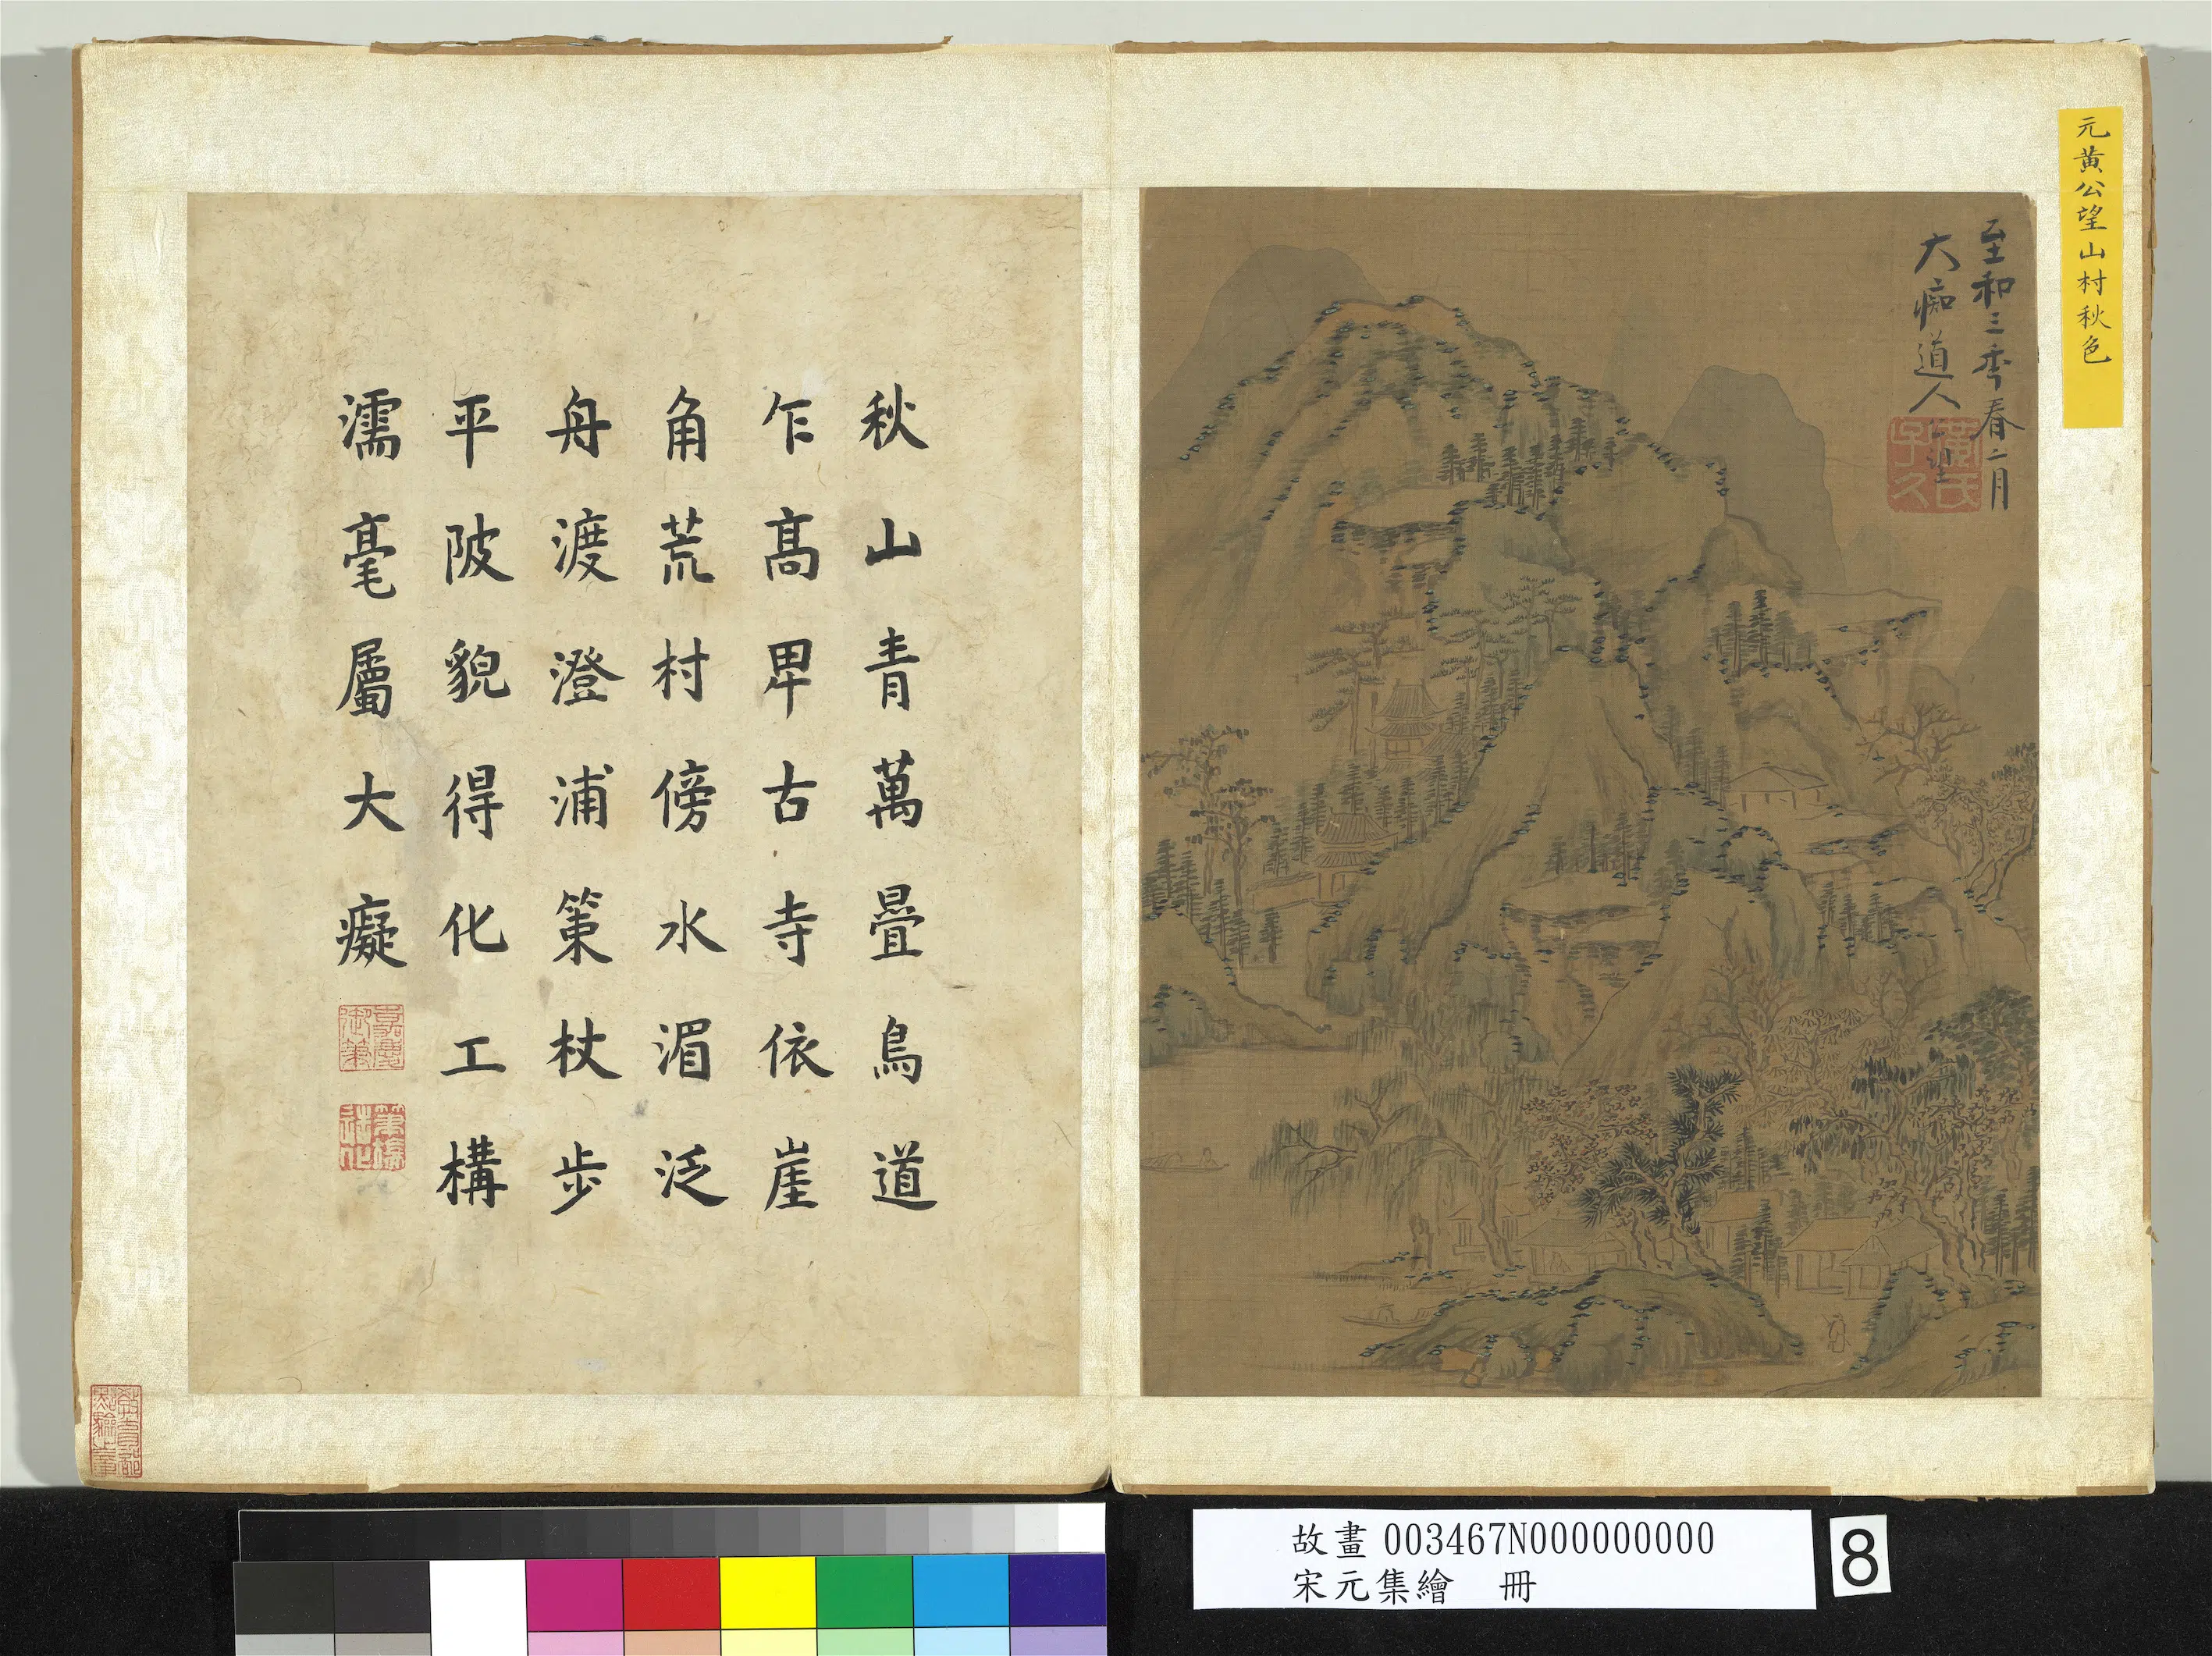 元黃公望山村秋色
至和三秊春二月
大痴道人
黃氏子久
秋山青萬疊鳥道
乍高卑古寺依崖
角荒村傍水湄泛
舟渡澄浦策杖步
平陂貌得化工構
濡毫屬大癡
嘉慶御筆
故畫 003467N000000000
宋元集繪 冊
8